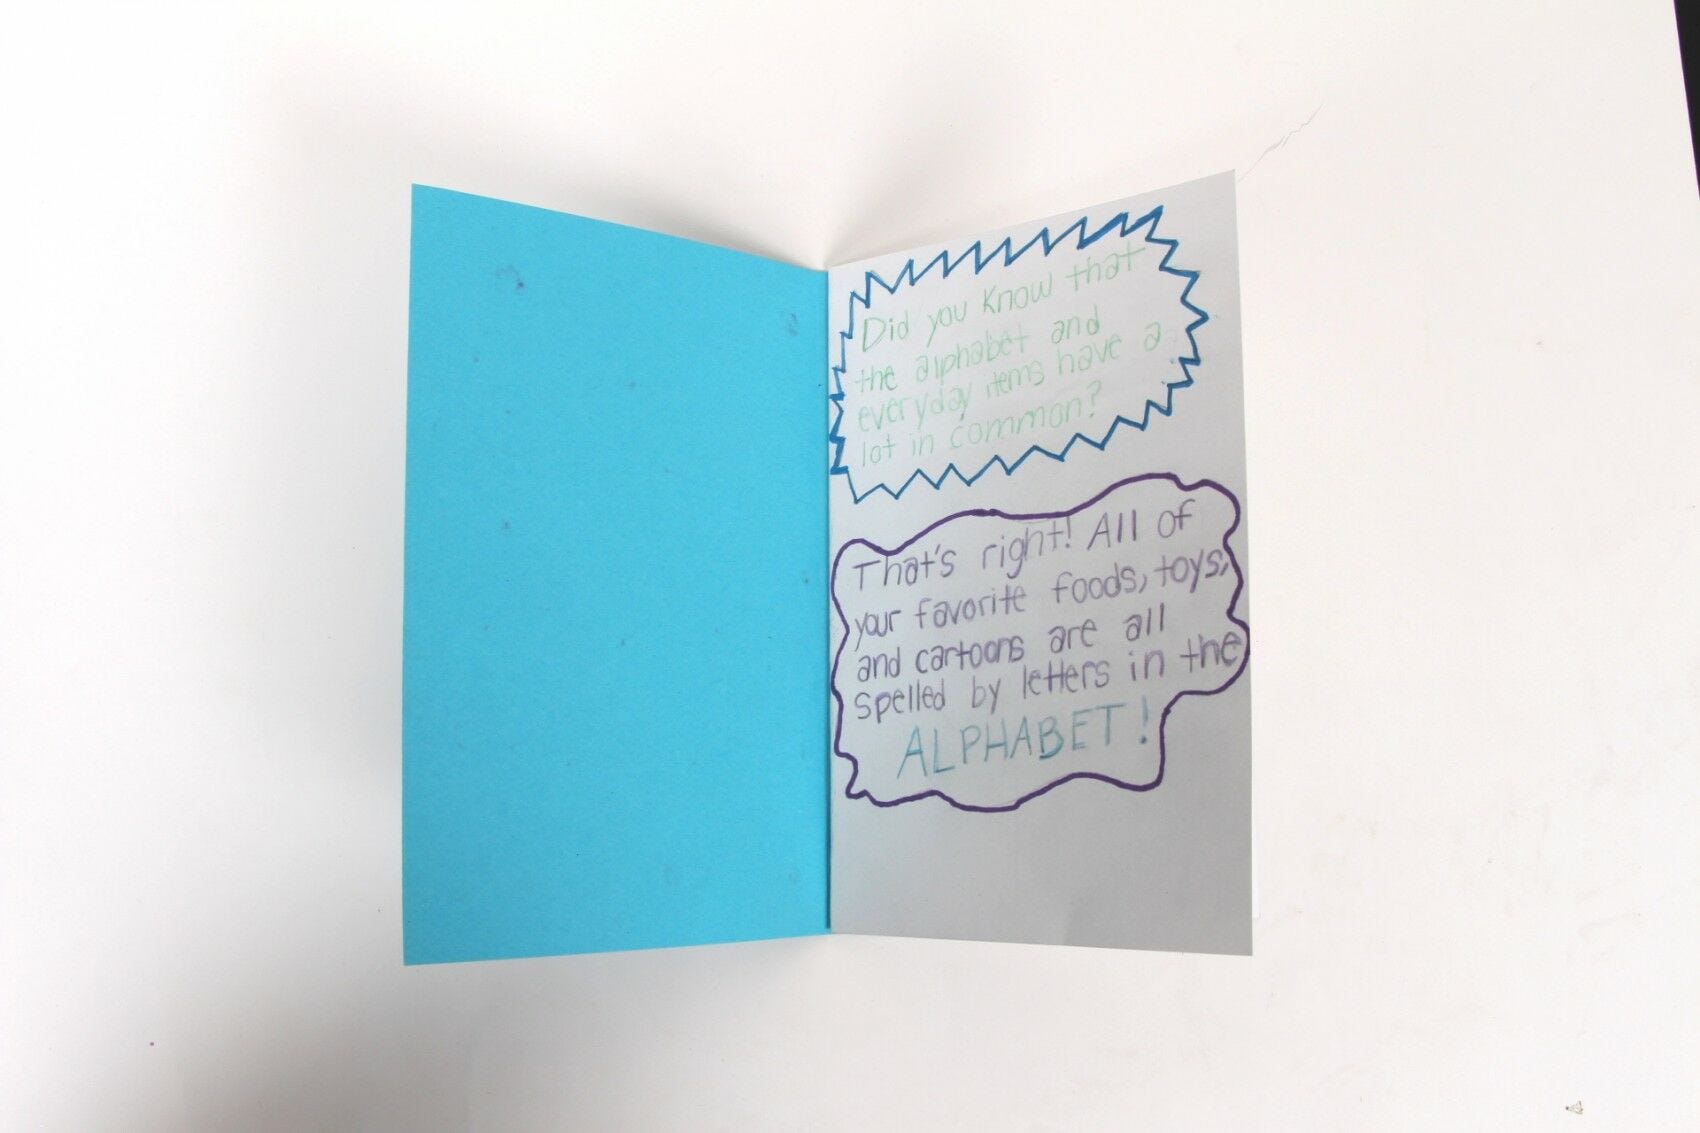 Did you know that
the alphabet and
everyday items have a
lot in common?
That's right! All of
your favorite foods, toys,
and cartoons are all
spelled by letters in the
ALPHABET!